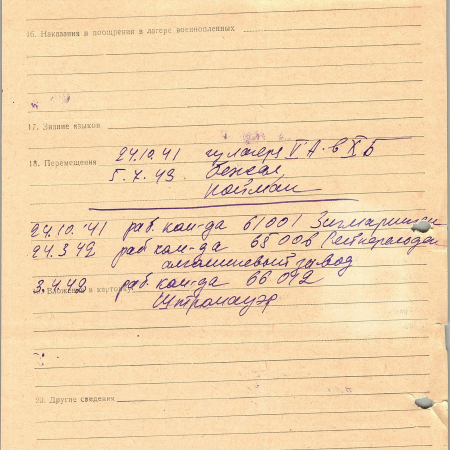 16. Наказания и поощрения в лагере военнопленных
17. Знание языков
18. Перемещения 24.10.41 из лагеря V А в X Б
5.7.43 бежал
пойман
24.10.41 раб. ком-да 61001 Зигмаринген
24.3.42 раб. ком-да 65006
алюминиевый завод
3.4.42 раб. ком-да 66042
Штромауэр
19. Вложения в карточку
20. Другие сведения